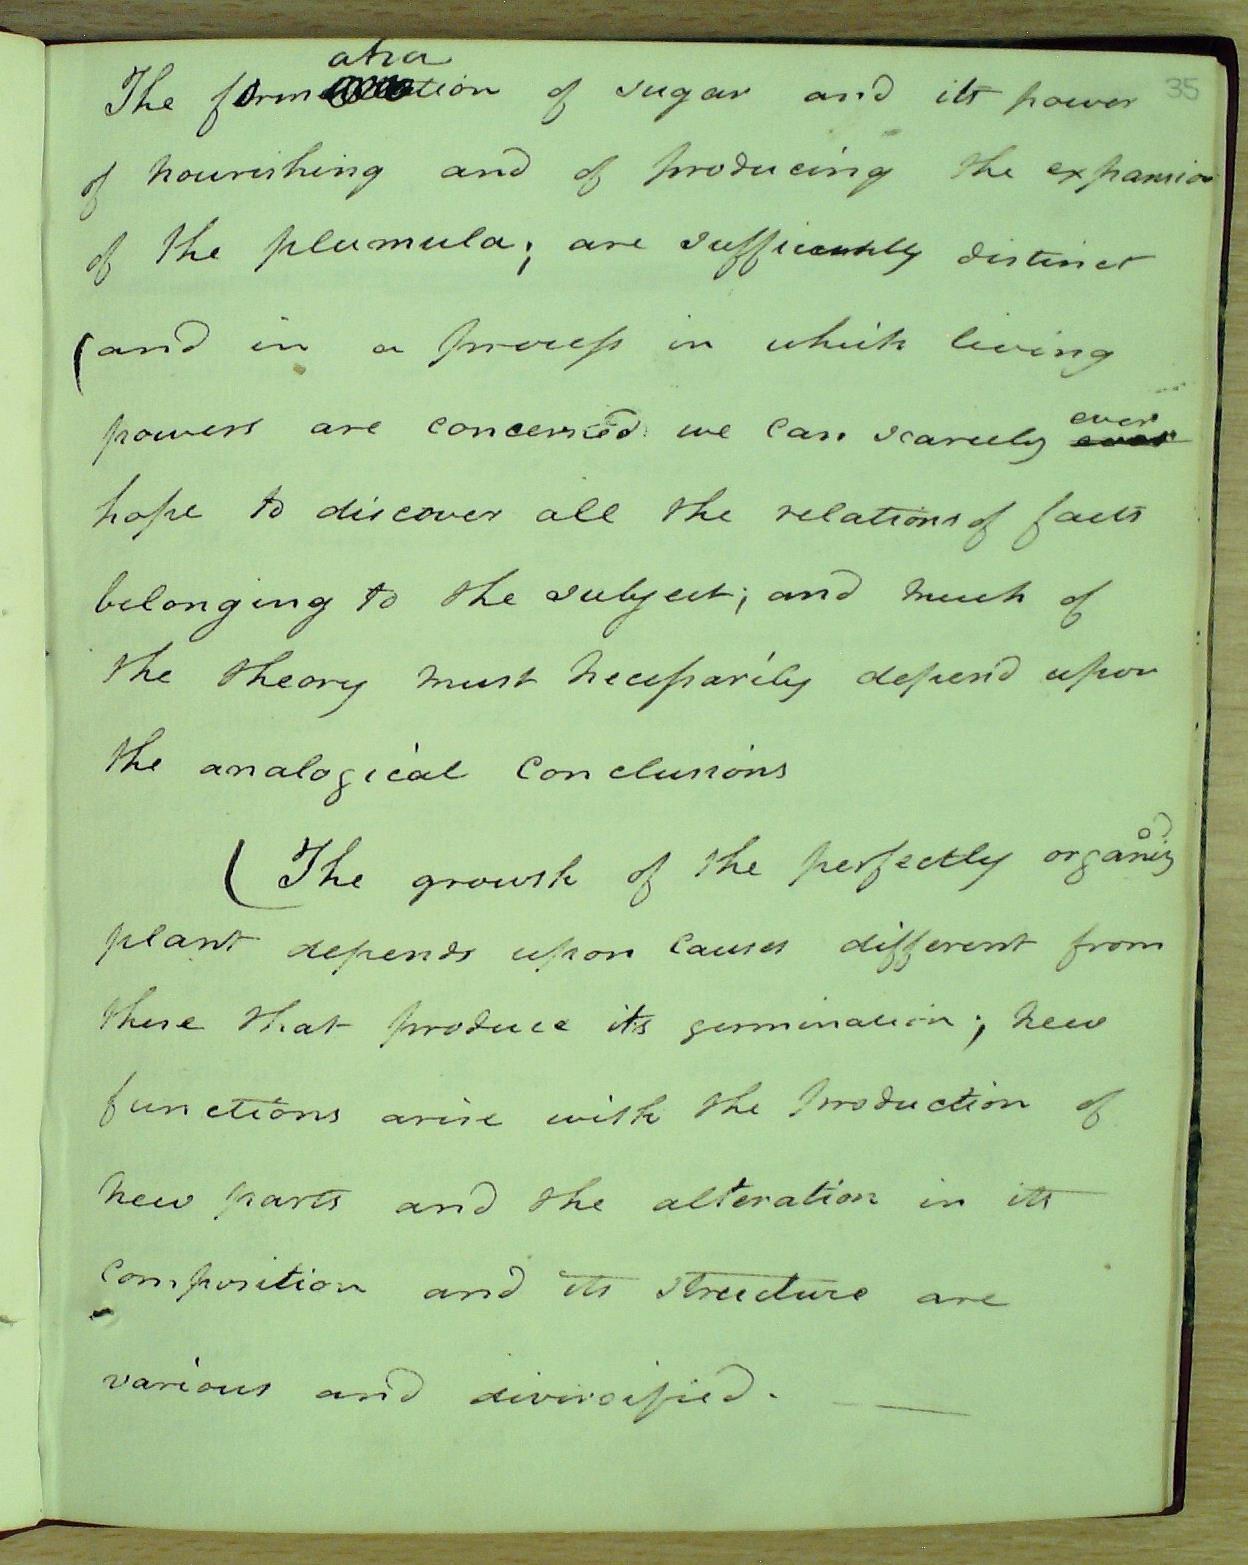 35
The formation of sugar and its power
of nourishing and of producing the expansion
of the plumula; are sufficiently distinct
(and in a process in which living
powers are concerned we can scarcely ever
hope to discover all the relations of facts
belonging to the subject; and much of
the theory must necessarily depend upon
the analogical conclusions
(The growth of the perfectly organizd
plant depends upon causes different from
those that produce its germination; new
functions arise with the production of
new parts and the alteration in its
composition and its structure are
various and diversified. —